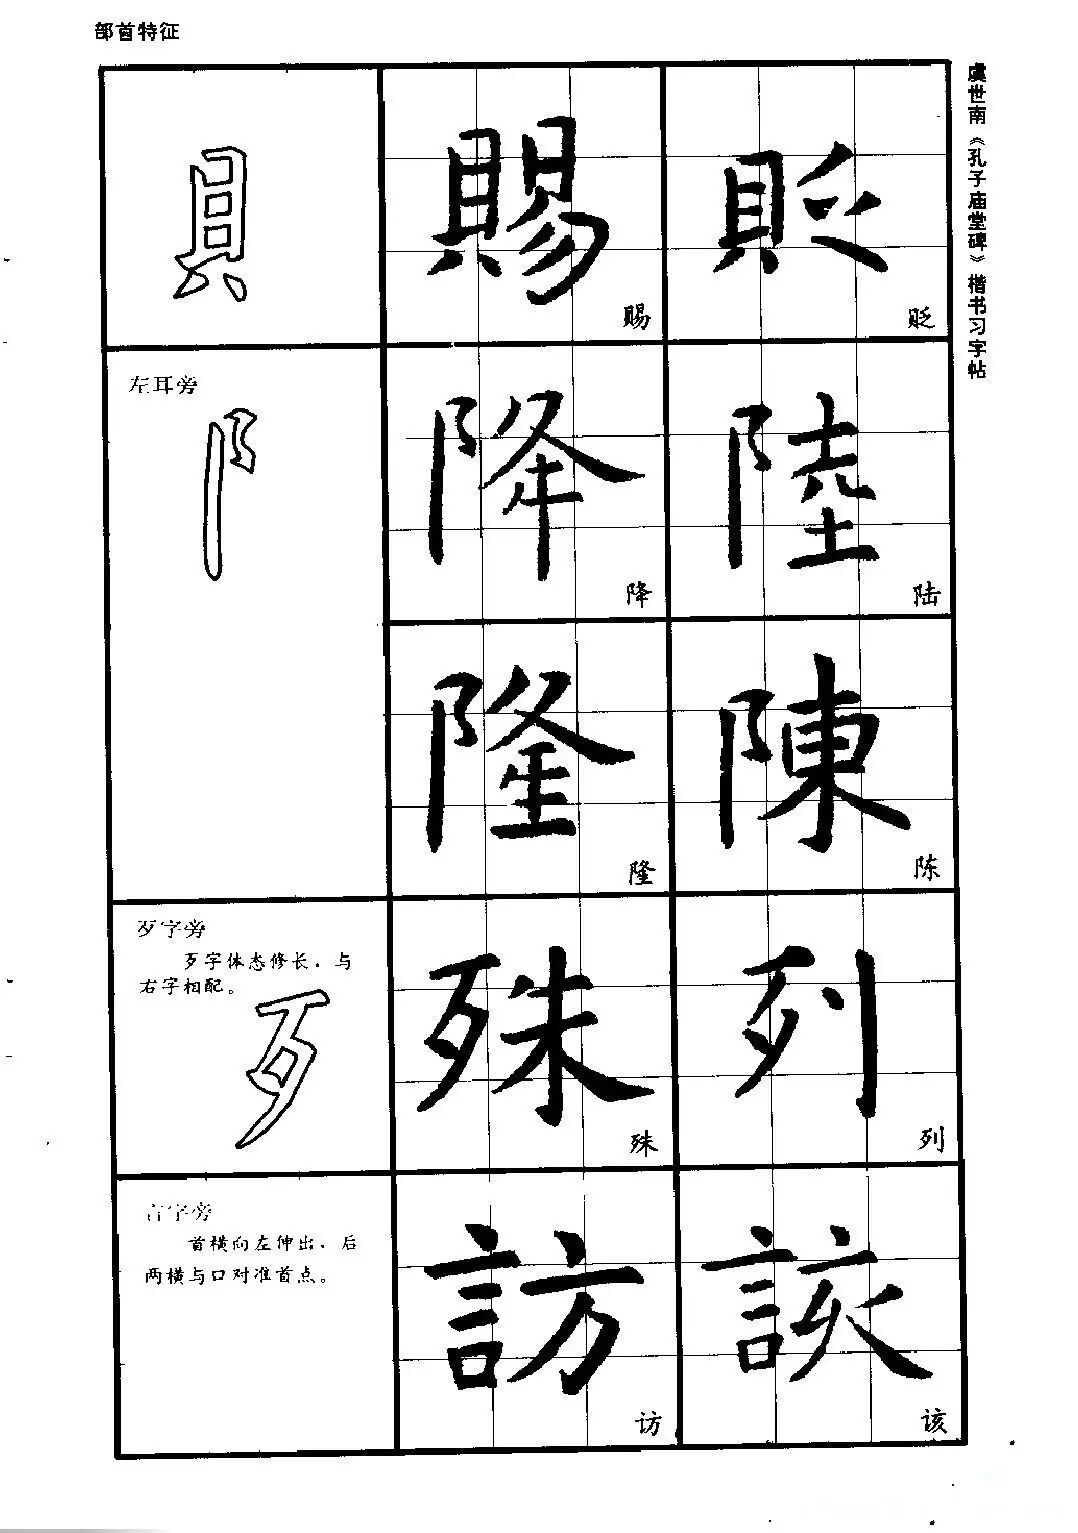 部首特征
虞世南《孔子庙堂碑》楷书习字帖
賜
赐
貶
贬
左耳旁
阝
降
降
陸
陆
隆
隆
陳
陈
歹字旁
歹字体态修长，与
右字相配。
歹
殊
殊
列
列
言字旁
首横向左伸出，后
两横与口对准首点。
訪
访
該
该